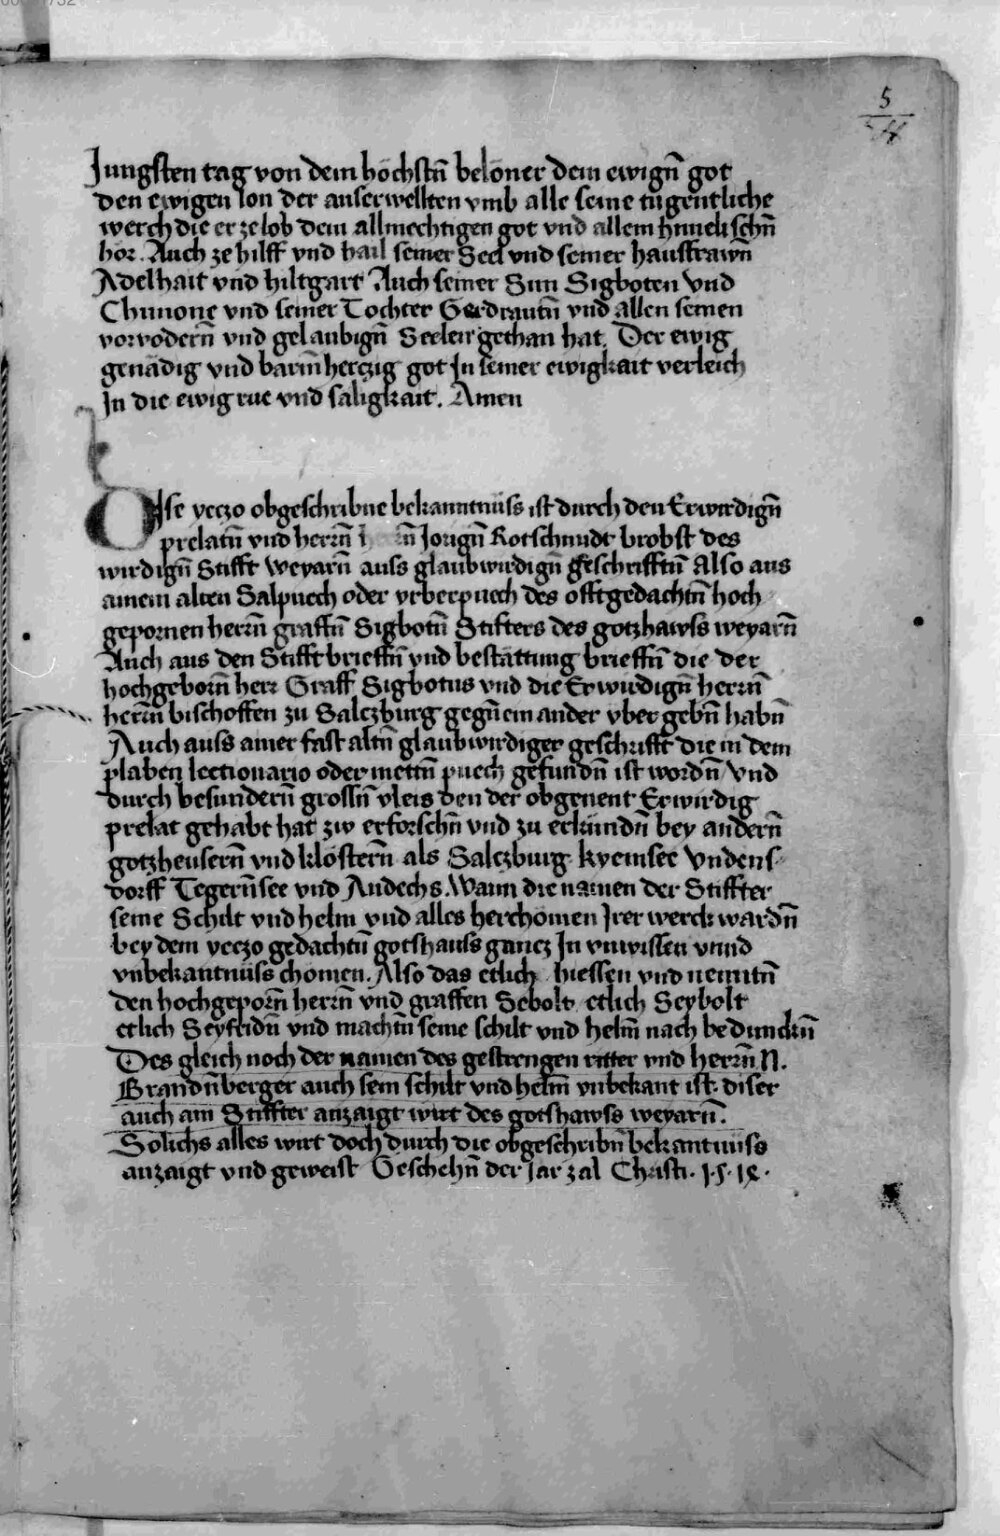 5
Jungsten tag von dem höchstn̄ belöner dem ewign̄ got
den ewigen lon der auserwellten vmb alle seine tugentliche
werch die er ze lob dem allmechtigen got vnd allem himelischn̄
hör. Auch ze hilff vnd hail seiner Sel vnd seiner hausfrawn̄
Adelhait vnd hiltgart Auch seiner Sun Sigboten vnd
Chunone vnd seiner Tochter Gerdrautn̄ vnd allen seinen
vorvodern̄ vnd gelaubign̄ Seelen gethan hat. Der ewig
genädig vnd barm̄herczig got In seiner ewigkait verleich
In die ewig rue vnd säligkait. Amen
Dise yeczo obgeschribne bekanntnüss ist durch den Erwirdign̄
prelatn̄ vnd herrn̄ Jorign̄ Rotschmidt brobst des
wirdign̄ Stifft weyarn̄ auss glaubwirdign̄ geschrifftn̄ Also aus
ainem alten Salpuech oder vrberpuech des offtgedachtn̄ hoch
gepornen herrn̄ graffn̄ Sigbotn̄ Stifters des gotzhawss weyarn̄
Auch aus den Stifft brieffn̄ vnd bestättung brieffn̄ die der
hochgeborn̄ herr Graff Sigbotus vnd die Erwirdign̄ herrn̄
herrn̄ bischoffen zu Salczburg gegn̄ einander vber gebn̄ habn̄
Auch auss ainer fast altn̄ glaubwirdiger geschrifft die in dem
plaben lectionario oder mettn̄ puech gefundn̄ ist wordn̄ vnd
durch besundern̄ grossn̄ vleis den der obgenent Erwirdig
prelat gehabt hat zw erforschn̄ vnd zu erkündn̄ bey andern̄
gotzheusern̄ vnd klöstern̄ als Salczburg kyemsee Vndens-
dorff Tegern̄see vnd Andechs. Wann die namen der Stiffter
seine Schilt vnd helm vnd alles herchomen Irer werck wardn̄
bey dem yeczo gedachtn̄ gotshauss gancz In vnwissen vnnd
vnbekantnüss chomen. Also das etlich hiessen vnd nenntn̄
den hochgeporn̄ herrn̄ vnd graffen Sebolt etlich Seybolt
etlich Seyfridn̄ vnd machtn̄ seine schilt vnd helm̄ nach bedunckn̄
Des gleich noch der namen des gestrengen ritter vnd herrn̄ N.
Brandn̄berger auch sein schilt vnd helm̄ vnbekant ist. diser
auch ain Stiffter anzaigt wirt des gotshawss weyarn̄.
Solichs alles wirt doch durch die obgeschribn̄ bekantnüss
anzaigt vnd geweist Geschehn̄ der Jar zal Christi. 1.5.18.